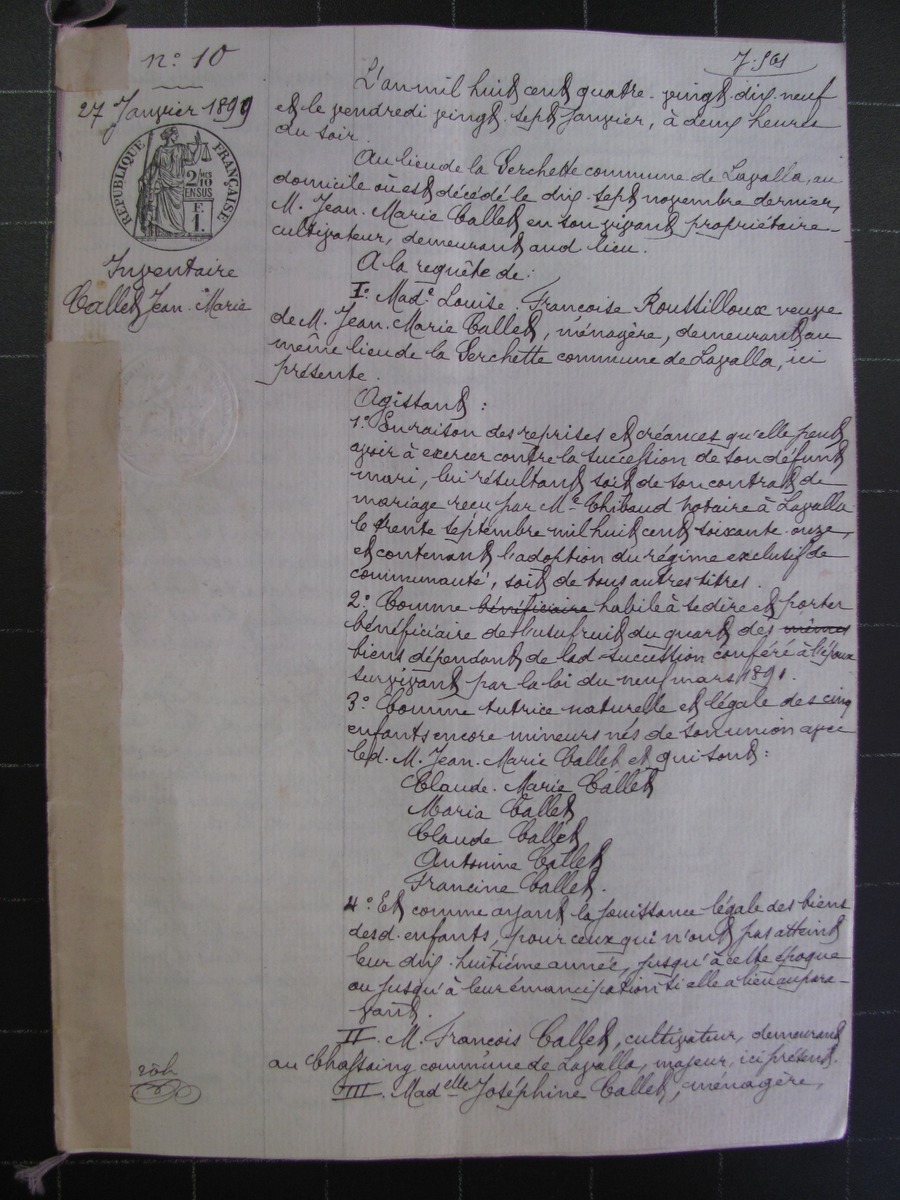 n.o 10
J: 501
27 Janvier 1899
RÉPUBLIQUE FRANÇAISE
2/10 MES
EN SUS
F.
1.
Inventaire
Callet Jean-Marie
L'an mil huit cent quatre-vingt-dix-neuf
et le vendredi vingt-sept janvier, à deux heures
du soir.
Au lieu de la Serchette commune de Lavalla, au
domicile où est décédé le dix-sept novembre dernier,
M. Jean-Marie Callet en son vivant propriétaire-
cultivateur, demeurant aud. lieu.
A la requête de:
I.o Mad.e Louise-Françoise Roussilloux veuve
de M. Jean-Marie Callet, ménagère, demeurant au
même lieu de la Serchette commune de Lavalla, ici
présente.
Agissant:
1.o En raison des reprises et créances qu'elle peut
avoir à exercer contre la succession de son défunt
mari, lui résultant soit de son contrat de
mariage reçu par M.e Thibaud notaire à Lavalla
le trente septembre mil huit cent soixante-onze,
et contenant l'adoption du régime exclusif de
communauté, soit de tous autres titres.
2.o Comme bénéficiaire habile à se dire et porter
bénéficiaire de l'usufruit du quart des mêmes
biens dépendant de lad. succession conféré à l'époux
survivant par la loi du neuf mars 1891.
3.o Comme tutrice naturelle et légale des cinq
enfants encore mineurs nés de son union avec
led. M. Jean-Marie Callet et qui sont:
Claude-Marie Callet
Maria Callet
Claude Callet
Antonine Callet
Francine Callet.
4.o Et comme ayant la jouissance légale des biens
desd. enfants, pour ceux qui n'ont pas atteint
leur dix-huitième année, jusqu'à cette époque
ou jusqu'à leur émancipation si elle a lieu aupara-
vant.
II. M. François Callet, cultivateur, demeurant
au Chassaing commune de Lavalla, majeur, ici présent.
III. Mad.elle Joséphine Callet, ménagère,